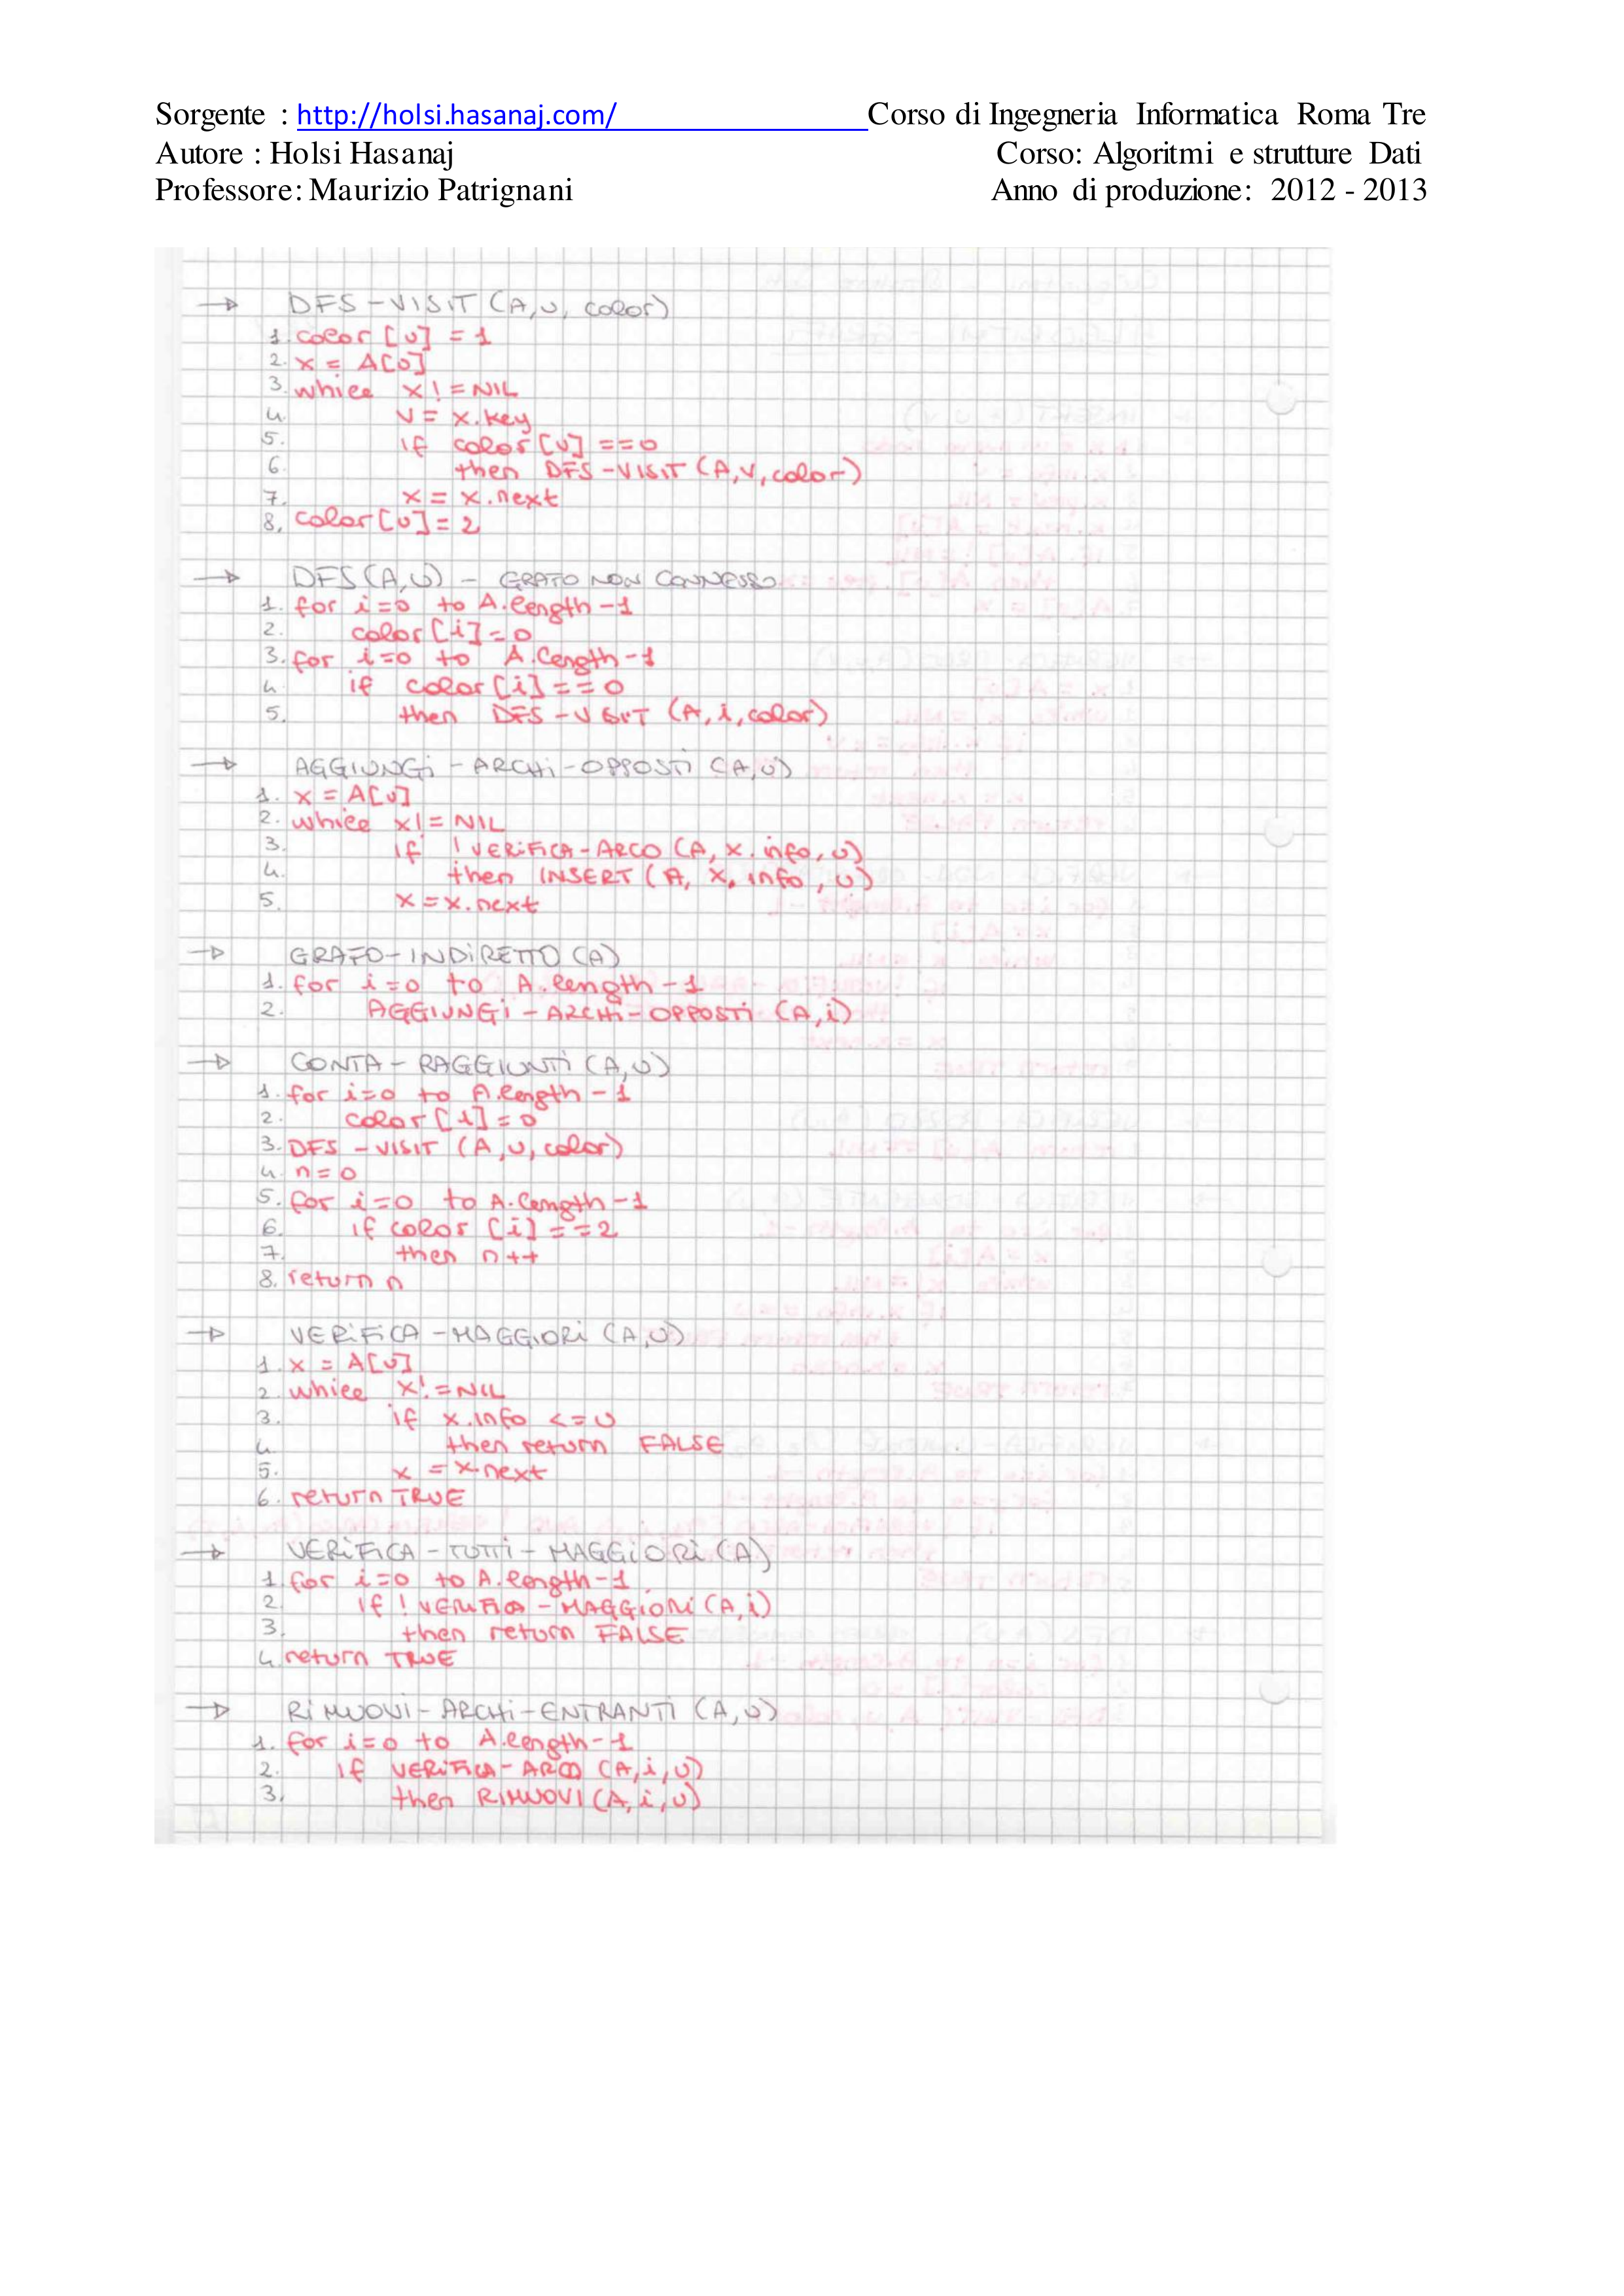 Sorgente : http://holsi.hasanaj.com/ Corso di Ingegneria Informatica Roma Tre
Autore : Holsi Hasanaj Corso: Algoritmi e strutture Dati
Professore: Maurizio Patrignani Anno di produzione: 2012 - 2013
→ DFS-VISIT (A,u, color)
1. color [u] = 1
2. x = A[u]
3. while x != NIL
4. v = x.key
5. if color [v] == 0
6. then DFS-VISIT (A,v,color)
7. x = x.next
8. color[u] = 2
→ DFS(A,u) - GRAFO NON CONNESSO
1. for i=0 to A.length-1
2. color[i]=0
3. for i=0 to A.length-1
4. if color[i]==0
5. then DFS-VISIT (A,i,color)
→ AGGIUNGI-ARCHI-OPPOSTI (A,u)
1. x = A[u]
2. while x != NIL
3. if !VERIFICA-ARCO (A, x.info, u)
4. then INSERT (A, x.info, u)
5. x = x.next
→ GRAFO-INDIRETTO (A)
1. for i=0 to A.length-1
2. AGGIUNGI-ARCHI-OPPOSTI (A,i)
→ CONTA-RAGGIUNTI (A,u)
1. for i=0 to A.length-1
2. color[i]=0
3. DFS-VISIT (A,u,color)
4. n=0
5. for i=0 to A.length-1
6. if color [i]==2
7. then n++
8. return n
→ VERIFICA-MAGGIORI (A,u)
1. x = A[u]
2. while x != NIL
3. if x.info <= u
4. then return FALSE
5. x = x.next
6. return TRUE
→ VERIFICA-TUTTI-MAGGIORI (A)
1. for i=0 to A.length-1
2. if !VERIFICA-MAGGIORI (A,i)
3. then return FALSE
4. return TRUE
→ RIMUOVI-ARCHI-ENTRANTI (A,u)
1. for i=0 to A.length-1
2. if VERIFICA-ARCO (A,i,u)
3. then RIMUOVI (A,i,u)